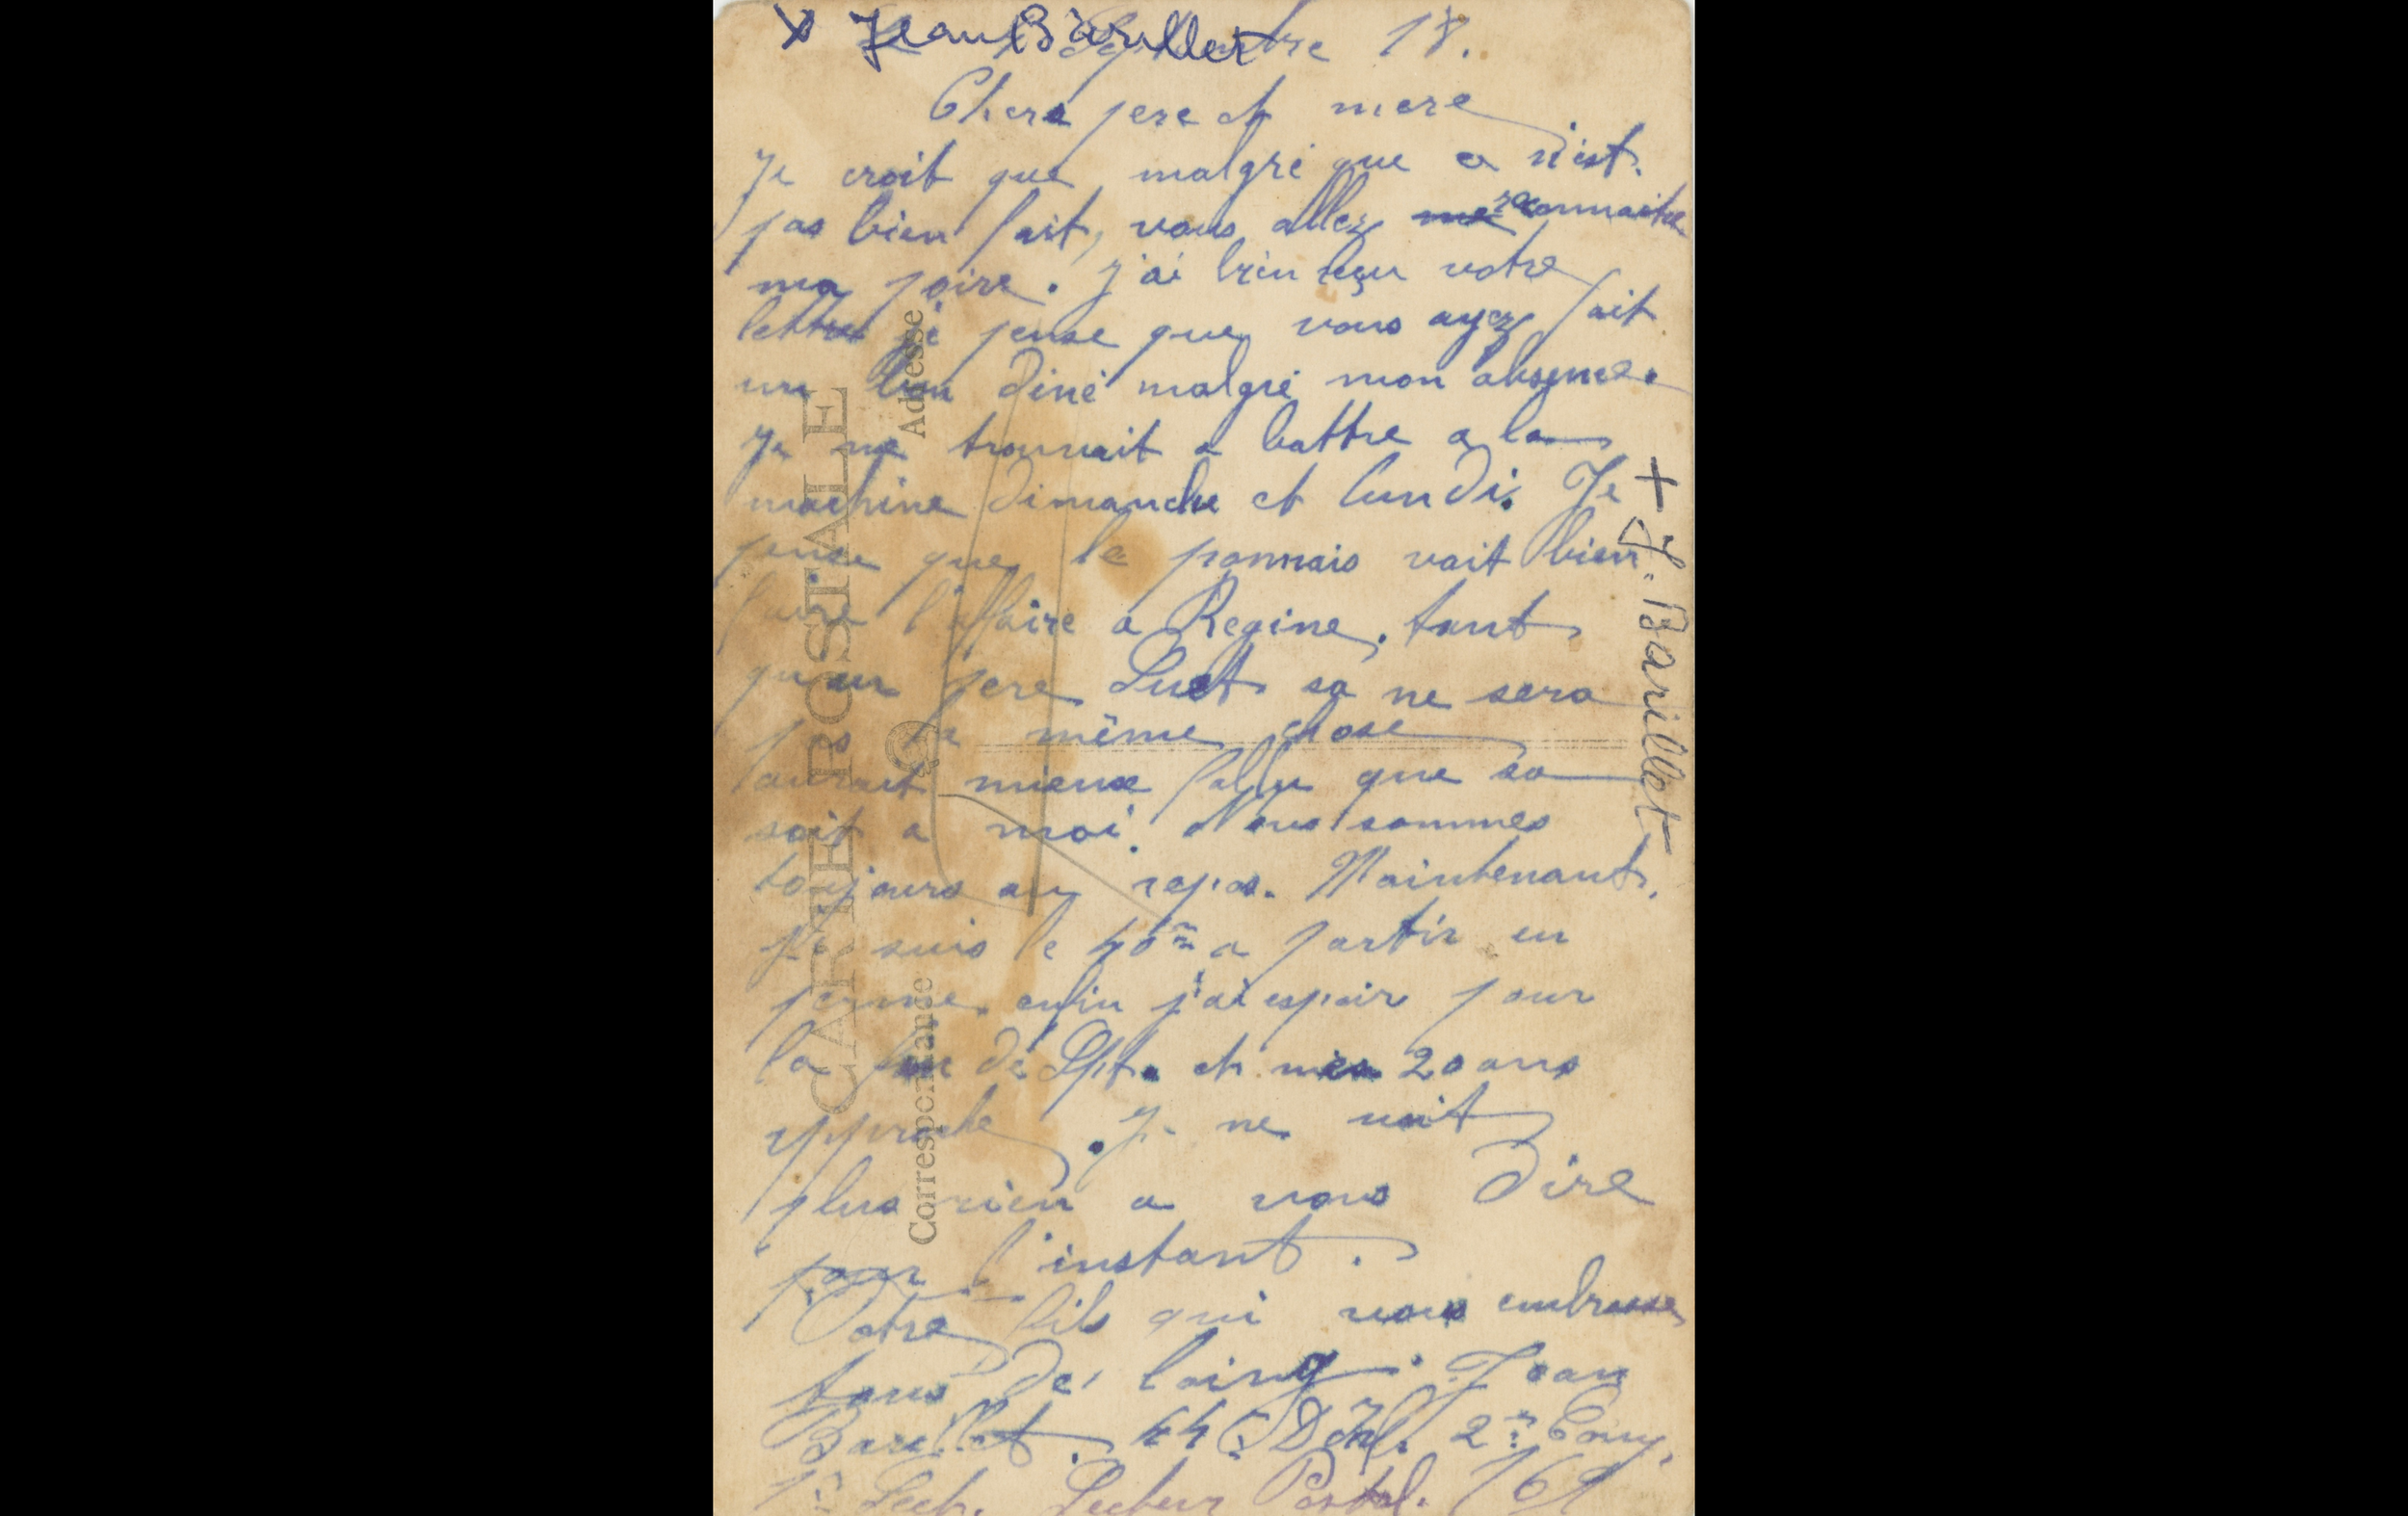 x Jean Barillet
Septembre 18.
Chers pere et mere
Je croit que malgré que ca n'est
pas bien fait, vous allez me reconnaitre
ma poire. J'ai bien reçu votre
lettre je pense que vous ayez fait
un bon diné malgré mon absence.
Je me trouvait a battre a la
machine dimanche et lundi. Je
pense que le vait bien
faire l'affaire a Regine. tant
qu'au pere Suet sa ne sera
pas la même chose
aurait mieux fallu que sa
soit a moi. Nous sommes
toujours au repos. Maintenant
je suis le a partir en
perme enfin j'ai espoir pour
la fin de Spt. et mes 20 ans
approche. Je ne voit
plus rien a vous dire
pour l'instant.
Votre fils qui vous embrasse
tous de loing. Jean
Barillet. 44e 2e Comp.
1e Sect. Secteur Postal. 161
+ J. Barillet
CARTE POSTALE
Correspondance Adresse